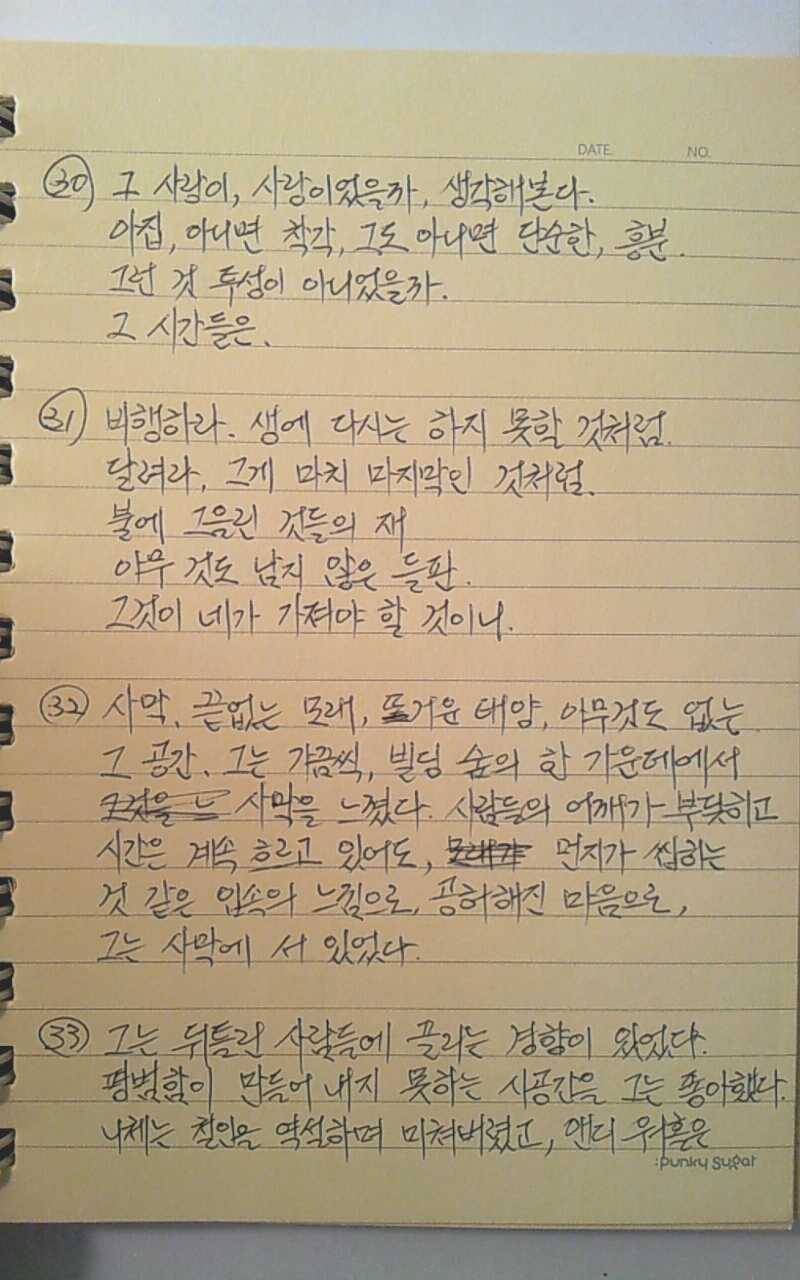 DATE. NO.
30 그 사랑이, 사랑이었을까, 생각해본다.
아집, 아니면 착각, 그도 아니면 단순한, 흥분.
그런 것 투성이 아니었을까.
그 시간들은.
31 비행하라. 생에 다시는 하지 못할 것처럼.
달려라, 그게 마치 마지막인 것처럼.
불에 그을린 것들의 재
아무 것도 남지 않은 들판.
그것이 네가 가져야 할 것이니.
32 사막, 끝없는 모래, 뜨거운 태양, 아무것도 없는
그 공간. 그는 가끔씩, 빌딩 숲의 한 가운데에서
사막을 느꼈다. 사람들의 어깨가 부딪히고
시간은 계속 흐르고 있어도, 모래가 먼지가 씹히는
것 같은 입속의 느낌으로, 공허해진 마음으로,
그는 사막에 서 있었다.
33 그는 뒤틀린 사람들에 끌리는 경향이 있었다.
평범함이 만들어 내지 못하는 시공간을 그는 좋아했다.
니체는 초인을 역설하며 미쳐버렸고, 앤디 워홀은
:punky sugar